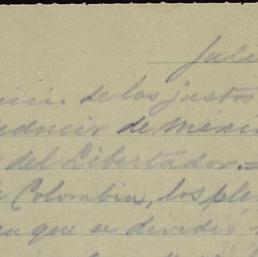 Juli
de los justos
deducir de Mexic
del Libertador.
Colombia, los ple
en que se dividió